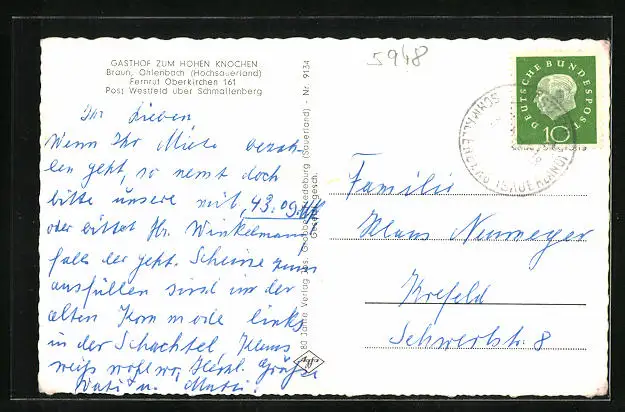 GASTHOF ZUM HOHEN KNOCHEN
Braun, Ohlenbach (Hochsauerland)
Fernruf Oberkirchen 161
Post Westfeld über Schmallenberg
Ihr Lieben
Wenn Ihr Miete bezah-
len geht, so nemt doch
bitte unsere mit, 43.09
oder bittet Hr. Winkelmann
falls der geht. Scheine zum
ausfüllen sind in der
alten Kommode links
in der Schachtel. Klaus
weiß wohl wo, Herzl. Grüße
Vati u. Mutti.
80 Jahre Verlag Jos. Grobbel, Fredeburg (Sauerland) - Nr. 9134
Gesetzl. gesch.
5948
DEUTSCHE BUNDESPOST
10
SCHMALLENBERG (SAUERLAND)
Familie
Klaus Neumeyer
Krefeld
Schwertstr. 8